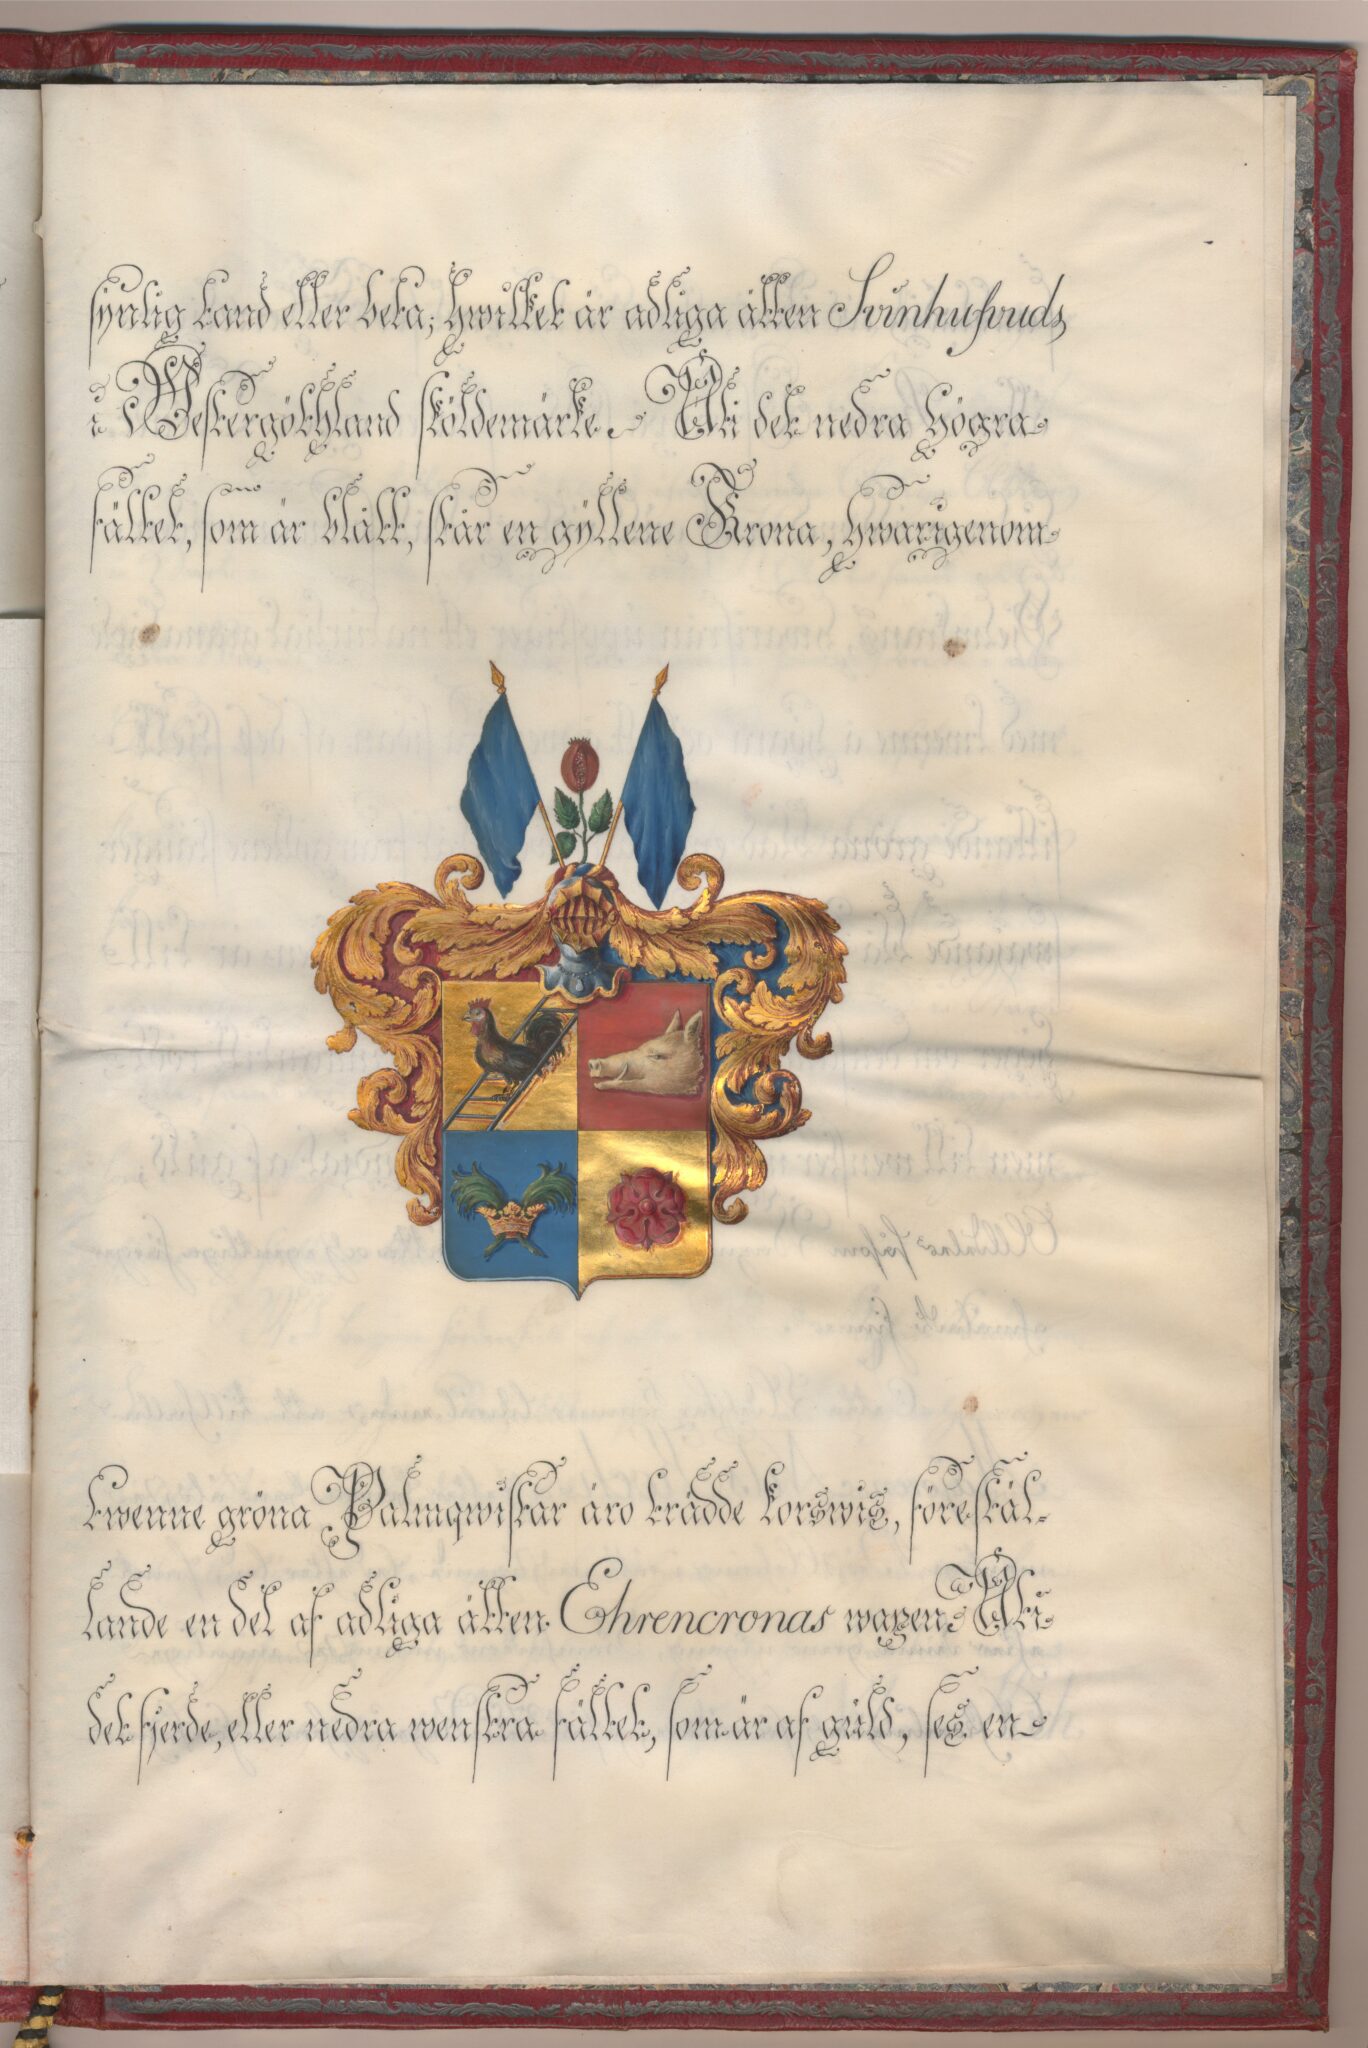 synlig tand eller beta; hwilket är adliga ätten Svinhufvuds
i Westergöthland sköldemärke. Uti det nedra högra
fältet, som är blått, står en gyllene Krona, hwarigenom
twenne gröna Palmqwistar äro trädde korswis, förestäl-
lande en del af adliga ätten Ehrencronas wapen. Uti
det fjerde, eller nedra wenstra fältet, som är af guld, ses en